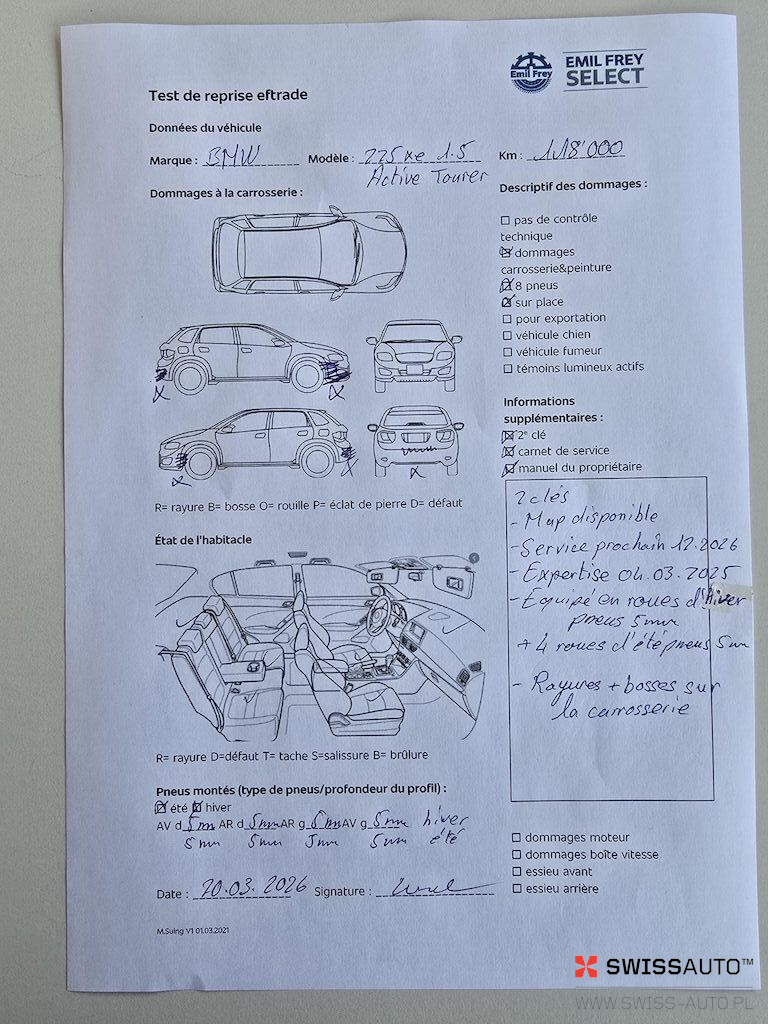 Emil Frey
EMIL FREY
SELECT
Test de reprise eftrade
Données du véhicule
Marque : BMW Modèle : 225 xe 1.5 Km : 118'000
Active Tourer
Dommages à la carrosserie :
Descriptif des dommages :
pas de contrôle
technique
dommages
carrosserie&peinture
8 pneus
sur place
pour exportation
véhicule chien
véhicule fumeur
témoins lumineux actifs
Informations
supplémentaires :
2e clé
carnet de service
manuel du propriétaire
R= rayure B= bosse O= rouille P= éclat de pierre D= défaut
2 clés
- Map disponible
- Service prochain 12.2026
- Expertise 04.03.2025
- Equipé en roues d'hiver
pneus 5mm
+ 4 roues d'été pneus 5mm
- Rayures + bosses sur
la carrosserie
État de l'habitacle
R= rayure D=défaut T= tache S=salissure B= brûlure
Pneus montés (type de pneus/profondeur du profil) :
été hiver
AV d 5mm AR d 5mm AR g 5mm AV g 5mm hiver
5mm 5mm 5mm 5mm été
dommages moteur
dommages boîte vitesse
essieu avant
essieu arrière
Date : 20.03.2026 Signature :
M.Suing V1 01.03.2021
SWISSAUTO™
WWW.SWISS-AUTO.PL